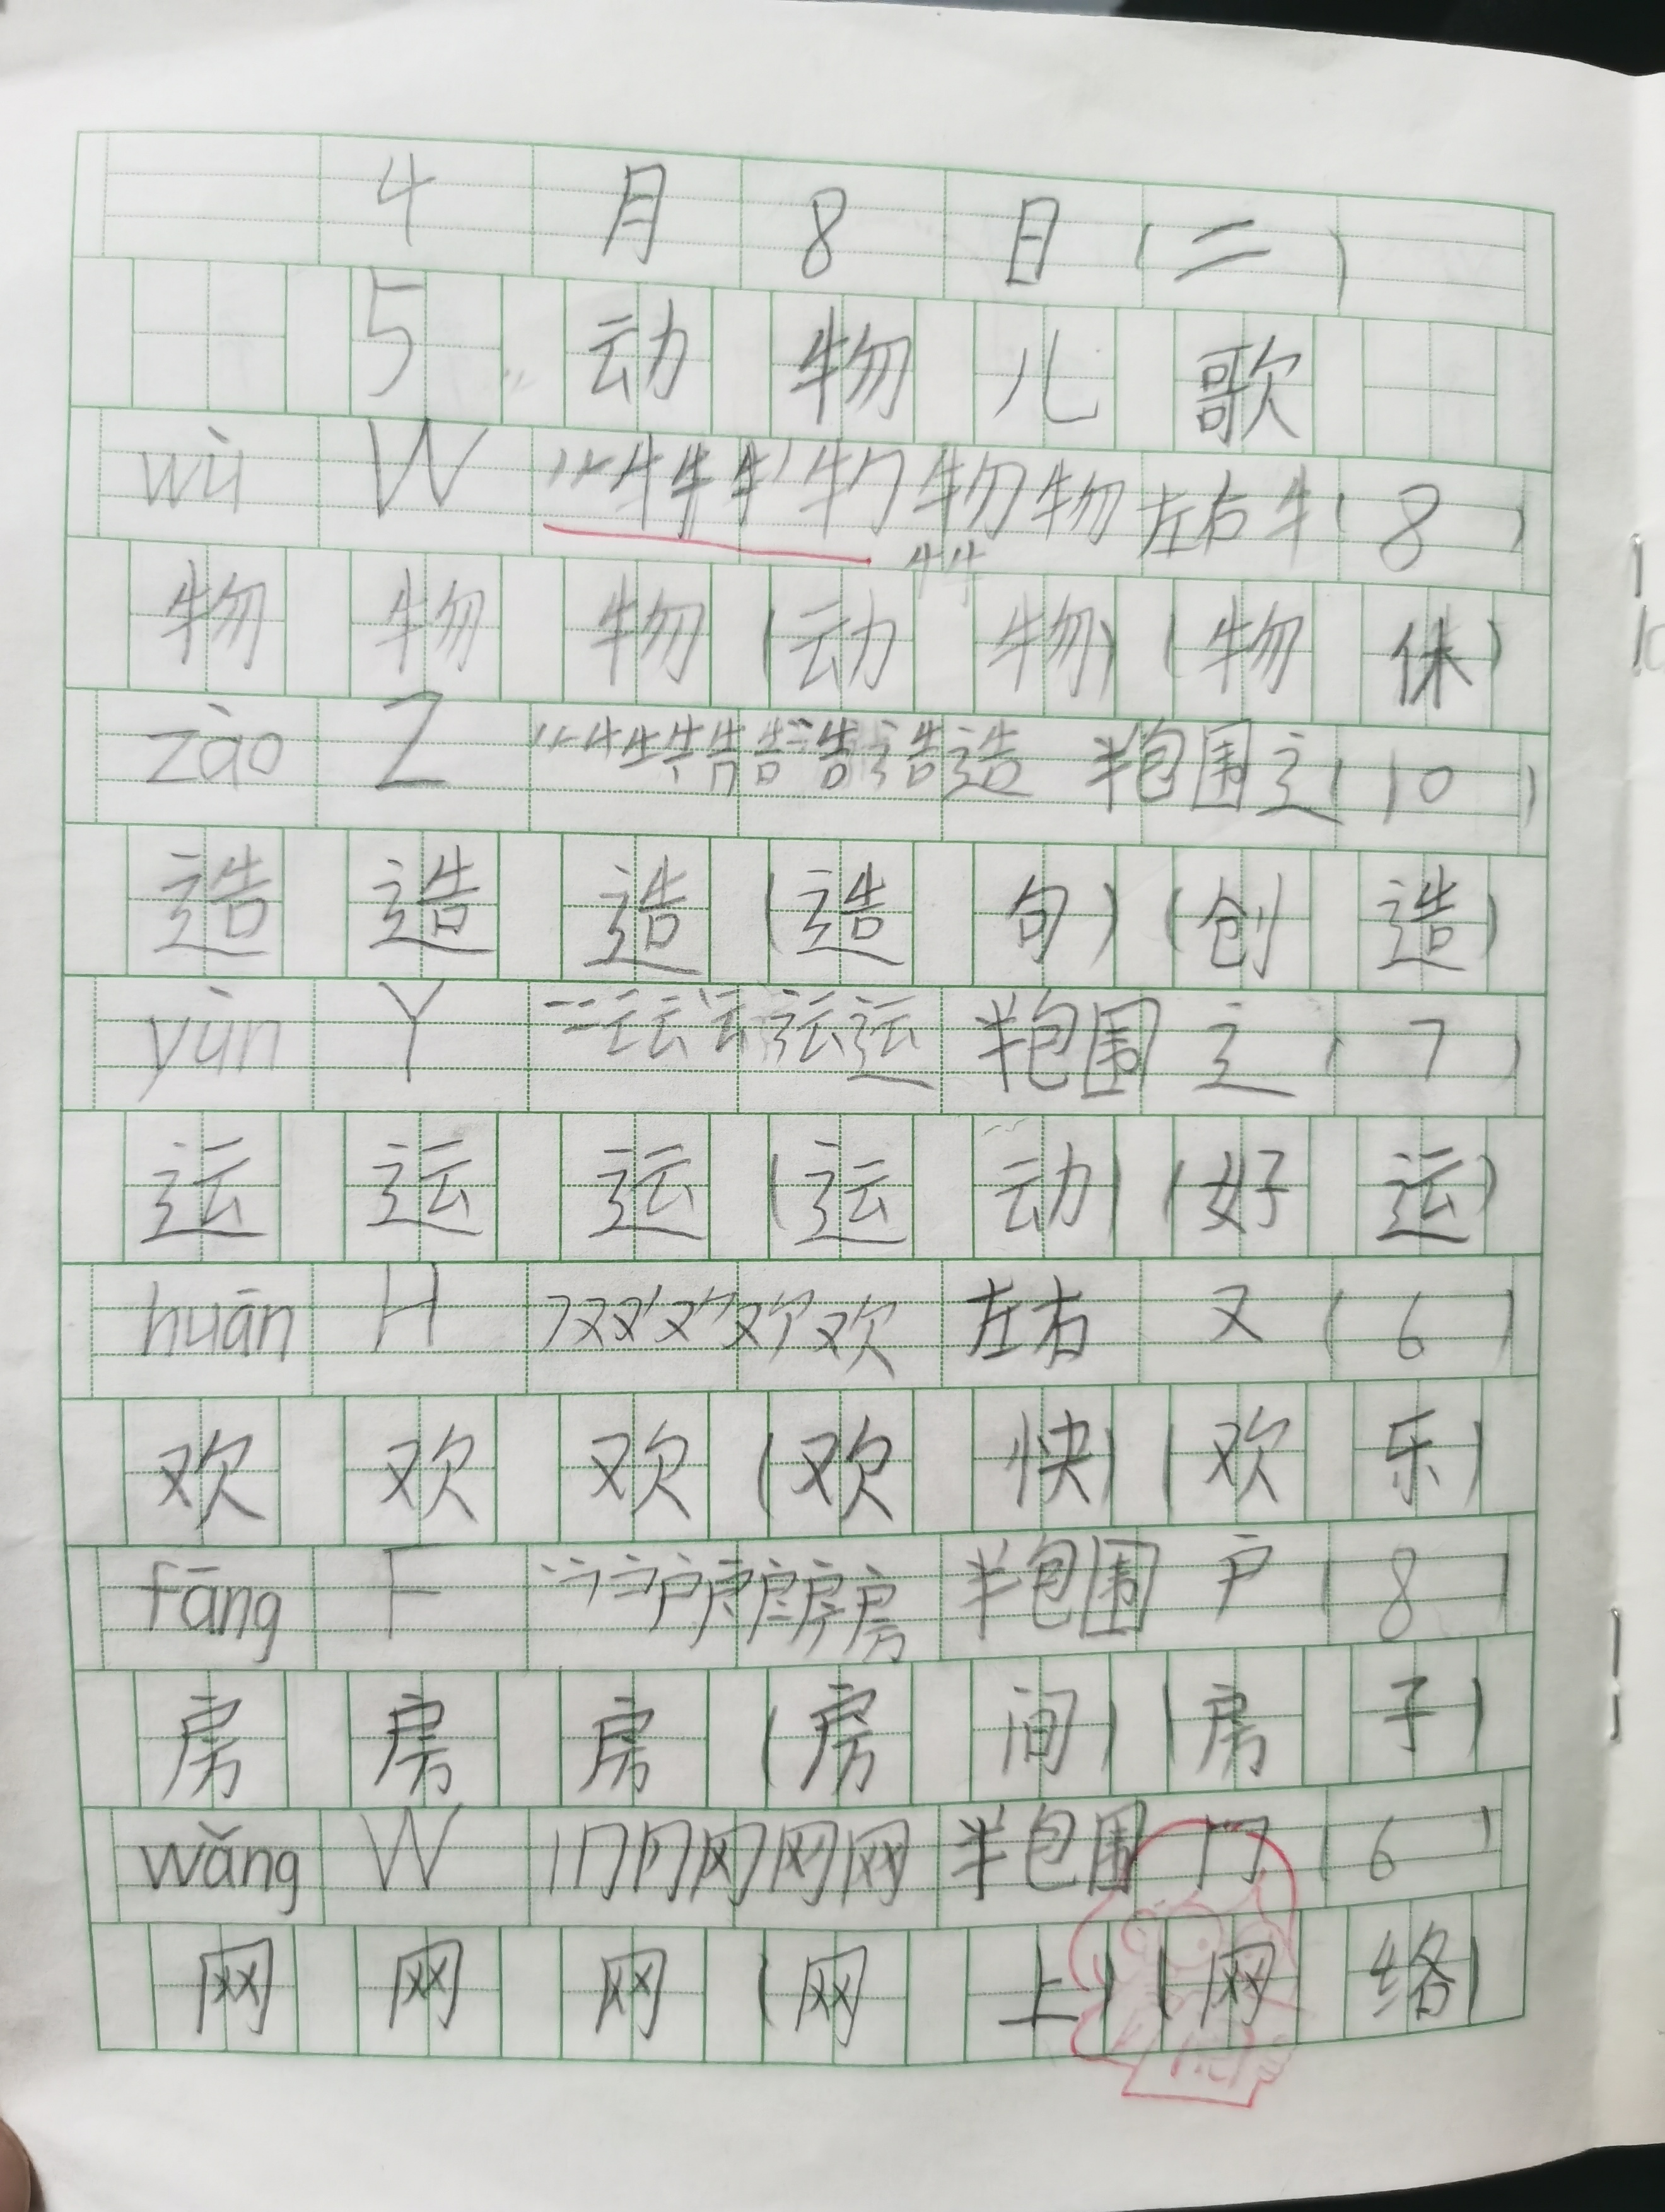 4月8日(二)
5 动物儿歌
wù W 物物 左右 牜(8)
牜
物物物(动物)(物体)
zào Z 告造造 半包围 辶(10)
造造造(造句)(创造)
yùn Y 二云云运运 半包围 辶(7)
运运运(运动)(好运)
huān H 又欢 左右 又(6)
欢欢欢(欢快)(欢乐)
fáng F 户房 半包围 户(8)
房房房(房间)(房子)
wǎng W 冂网网 半包围 冂(6)
网网网(网上)(网络)